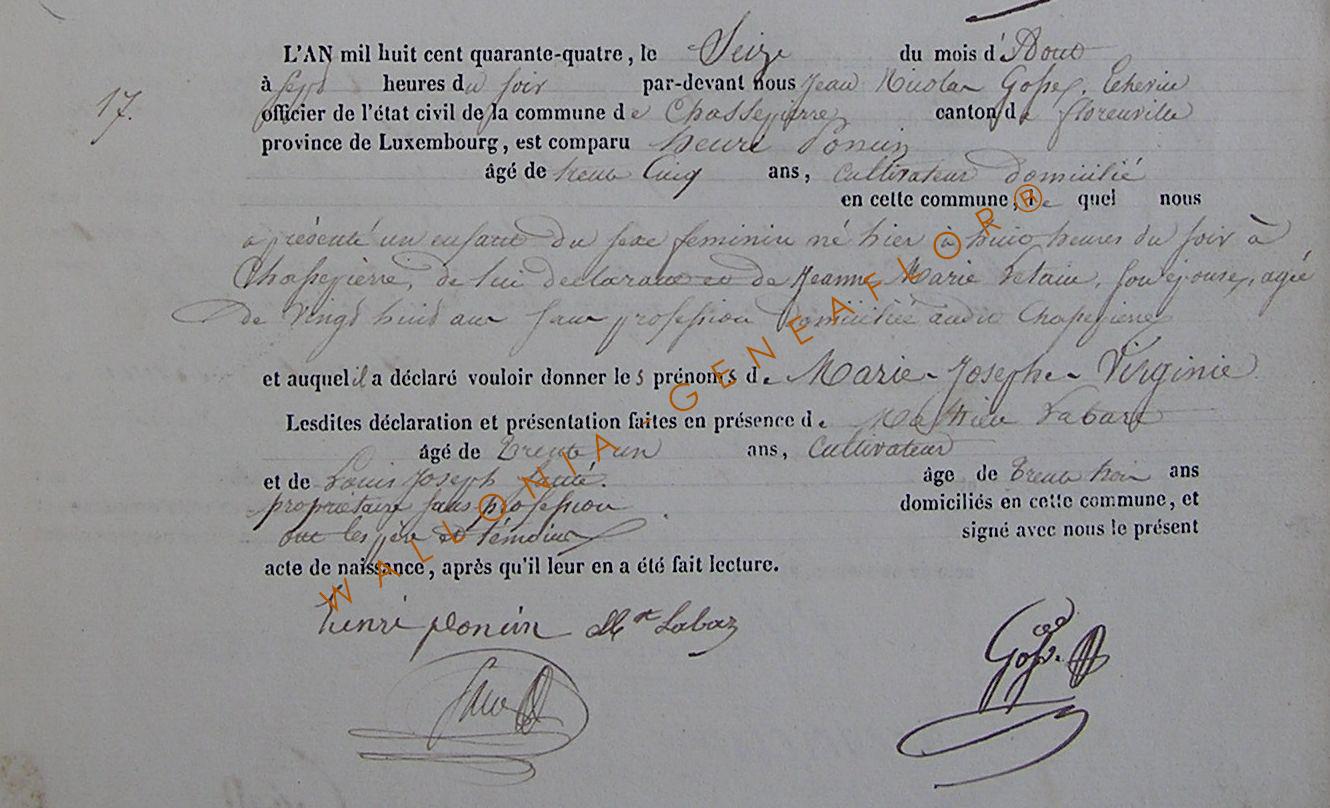 L'AN mil huit cent quarante-quatre, le Seize du mois d'Aout
à sept heures du soir par-devant nous Jean Nicolas Gosse, Echevin
17.
officier de l'état civil de la commune de Chassepierre, canton de florenville
province de Luxembourg, est comparu henri Poncin
âgé de trente Cinq ans, Cultivateur domicilié
en cette commune, le quel nous
a présenté un enfant du sexe feminin né hier à huit heures du soir à
Chassepierre, de lui declarant et de Jeanne Marie, son épouse, agée
de vingt huit ans sans profession domiciliée audit Chassepierre
et auquel il a déclaré vouloir donner les prénoms de Marie Josephe Virginie
Lesdites déclaration et présentation faites en présence de Mathieu Labare
âgé de trente un ans, Cultivateur
et de Louis Joseph âge de trente trois ans
propriétaire sans profession domiciliés en cette commune, et
ont les père et témoins signé avec nous le présent
acte de naissance, après qu'il leur en a été fait lecture.
henri poncin Mt Labar
Gosse
WALLONIA - GENEAFLOR®